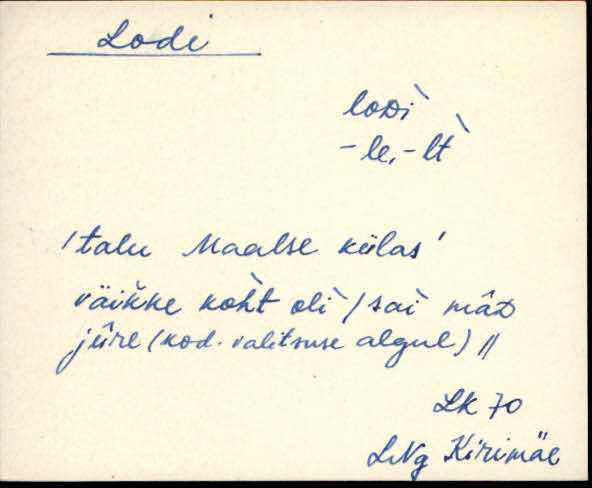 Lodi
loᴅì
-le, -lt̀
'talu Maalse külas'
väik̆ke koh̀t olì / sai mâᴅ
jüre (kod. valitsuse algul) //
LK 70
LNg Kirimäe